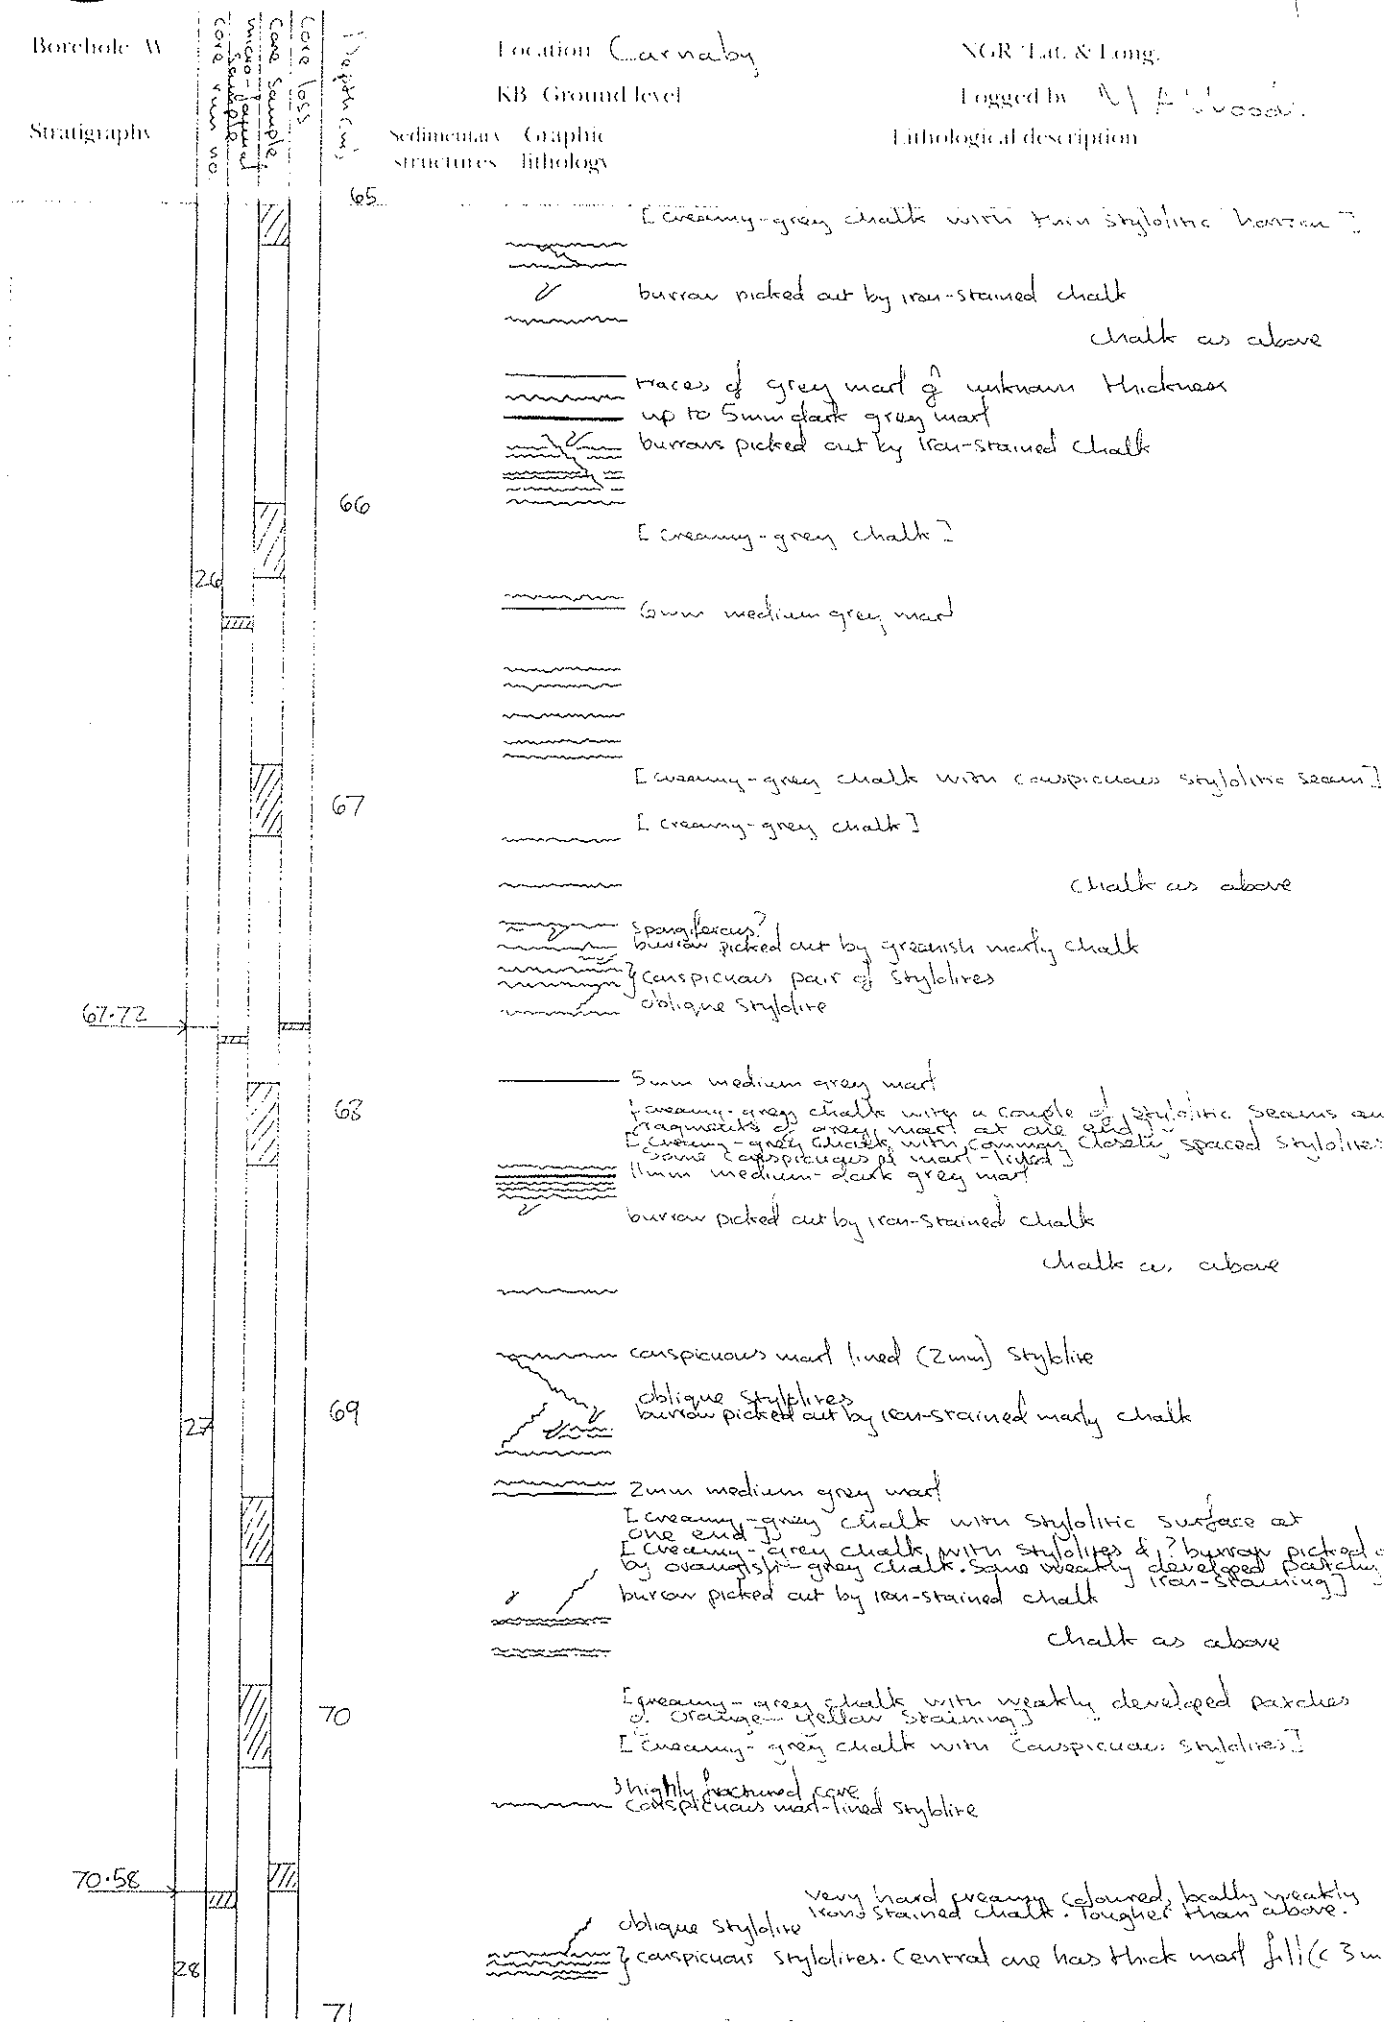 Borehole
Location Carnaby
NGR/Lat. & Long.
KB/Ground level
Logged by M A Wood.
Stratigraphy
core run no
micro-faunal sample
Core sample
Core loss
Depth (m)
Sedimentary structures
Graphic lithology
Lithological description
65
[creamy-grey chalk with thin stylolitic horizon]
burrow picked out by iron-stained chalk
chalk as above
traces of grey marl of unknown thickness
up to 5mm dark grey marl
burrows picked out by iron-stained chalk
66
[creamy-grey chalk]
26
6mm medium grey marl
[creamy-grey chalk with conspicuous stylolitic seam]
67
[creamy-grey chalk]
chalk as above
spongiferous?
burrow picked out by greenish marly chalk
} conspicuous pair of stylolites
oblique stylolite
67.72
5mm medium grey marl
68
[creamy-grey chalk with a couple of stylolitic seams
fragments of grey marl at one end]
[creamy-grey chalk with common closely spaced stylolites
some conspicuous & marl-lined]
11mm medium-dark grey marl
burrow picked out by iron-stained chalk
chalk as above
conspicuous marl lined (2mm) stylolite
oblique stylolites
69
burrow picked out by iron-stained marly chalk
27
2mm medium grey marl
[creamy-grey chalk with stylolitic surface at
one end]
[creamy-grey chalk with stylolites & ?burrow picked
by orangish-grey chalk. Some weakly developed patchy
iron-staining]
burrow picked out by iron-stained chalk
chalk as above
[creamy-grey chalk with weakly developed patches
of orange-yellow staining]
70
[creamy-grey chalk with conspicuous stylolites]
} highly fractured core
conspicuous marl-lined stylolite
70.58
very hard creamy coloured, locally weakly
iron stained chalk. Tougher than above.
oblique stylolite
} conspicuous stylolites. Central one has thick marl fill (c 3m
28
71